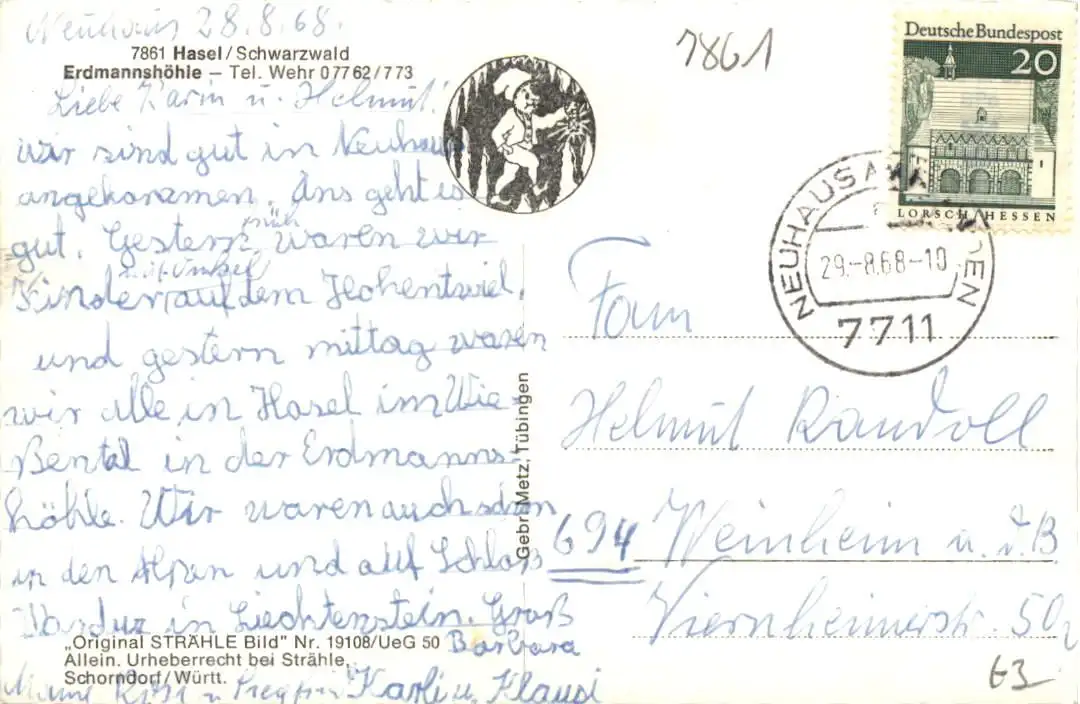 Neuhaus 28.8.68.
7861 Hasel/Schwarzwald
Erdmannshöhle – Tel. Wehr 07762/773
Liebe Karin u. Helmut!
wir sind gut in Neuhaus
angekommen. Uns geht es
gut. Gestern früh waren wir
Kinder mit Onkel auf dem Hohentwiel,
und gestern mittag waren
wir alle in Hasel im Wie-
ßental in der Erdmanns-
höhle. Wir waren auch schon
in den Alpen und auf Schloß
Vaduz in Liechtenstein. Gruß
Barbara
„Original STRÄHLE Bild" Nr. 19108/UeG 50
Allein. Urheberrecht bei Strähle,
Schorndorf/Württ.
u. Karli u. Klausi
Gebr. Metz, Tübingen
7861
Deutsche Bundespost
20
LORSCH/HESSEN
NEUHAUSEN
29.-8.68-10
7711
Fam
Helmut Randoll
694 Weinheim a. d. B
Viernheimerstr. 50
63